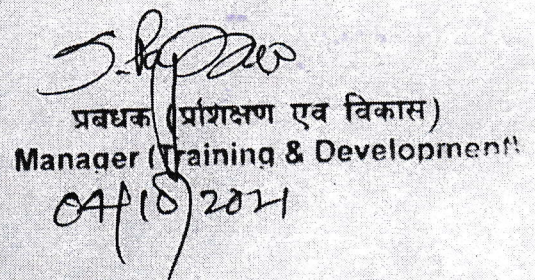 प्रबंधक (प्रशिक्षण एव विकास)
Manager (Training & Development)
04/10/2021